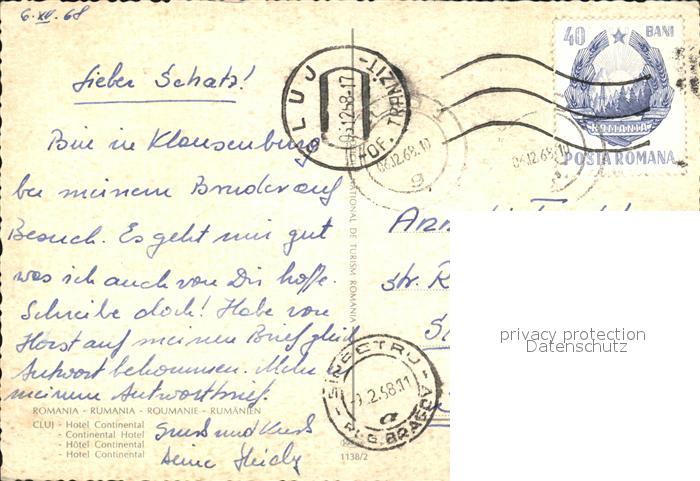 6. XII. 68
Lieber Schatz!
Bin in Klausenburg
bei meinem Bruder auf
Besuch. Es geht mir gut
was ich auch von Dir hoffe.
Schreibe doch! Habe von
Horst auf meinen Brief gleich
Antwort bekommen. Mehr in
meinem Antwortbrief.
Gruß und Kuß
Deine
ROMANIA - RUMANIA - ROUMANIE - RUMÄNIEN
CLUJ - Hotel Continental
- Continental Hotel
- Hôtel Continental
- Hotel Continental
1138/2
NATIONAL DE TURISM ROMANIA
CLUJ
-OF. TRANZIT-
06.12.68-17
06.12.68.10
9
06.12.68.10
40 BANI
ROMANIA
POSTA ROMANA
str.
SINPETRU
-9.2.68.11
a
REG. BRAȘOV
privacy protection
Datenschutz